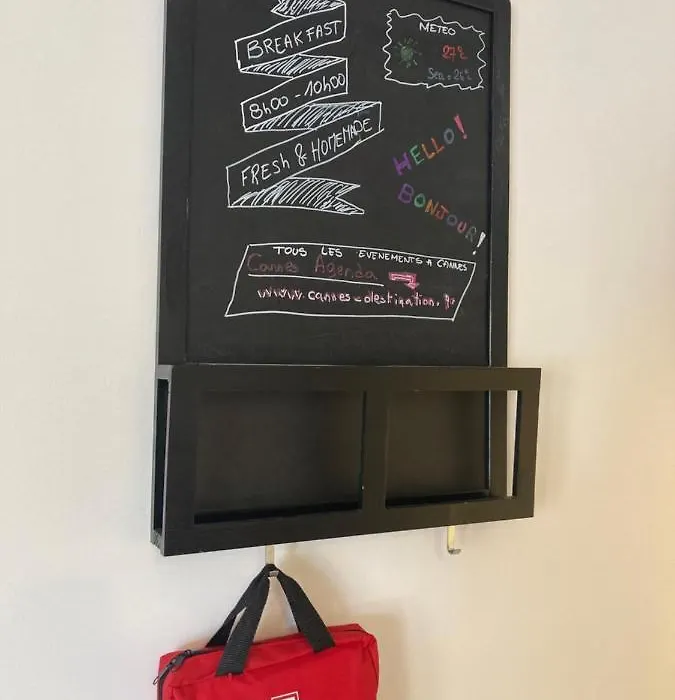 BREAKFAST
8h00 - 10h00
FRESH & HOMEMADE
METEO
27°C
Sea : 24°C
HELLO!
BONJOUR!
TOUS LES EVENEMENTS A CANNES
Cannes Agenda
www.cannes-destination.fr